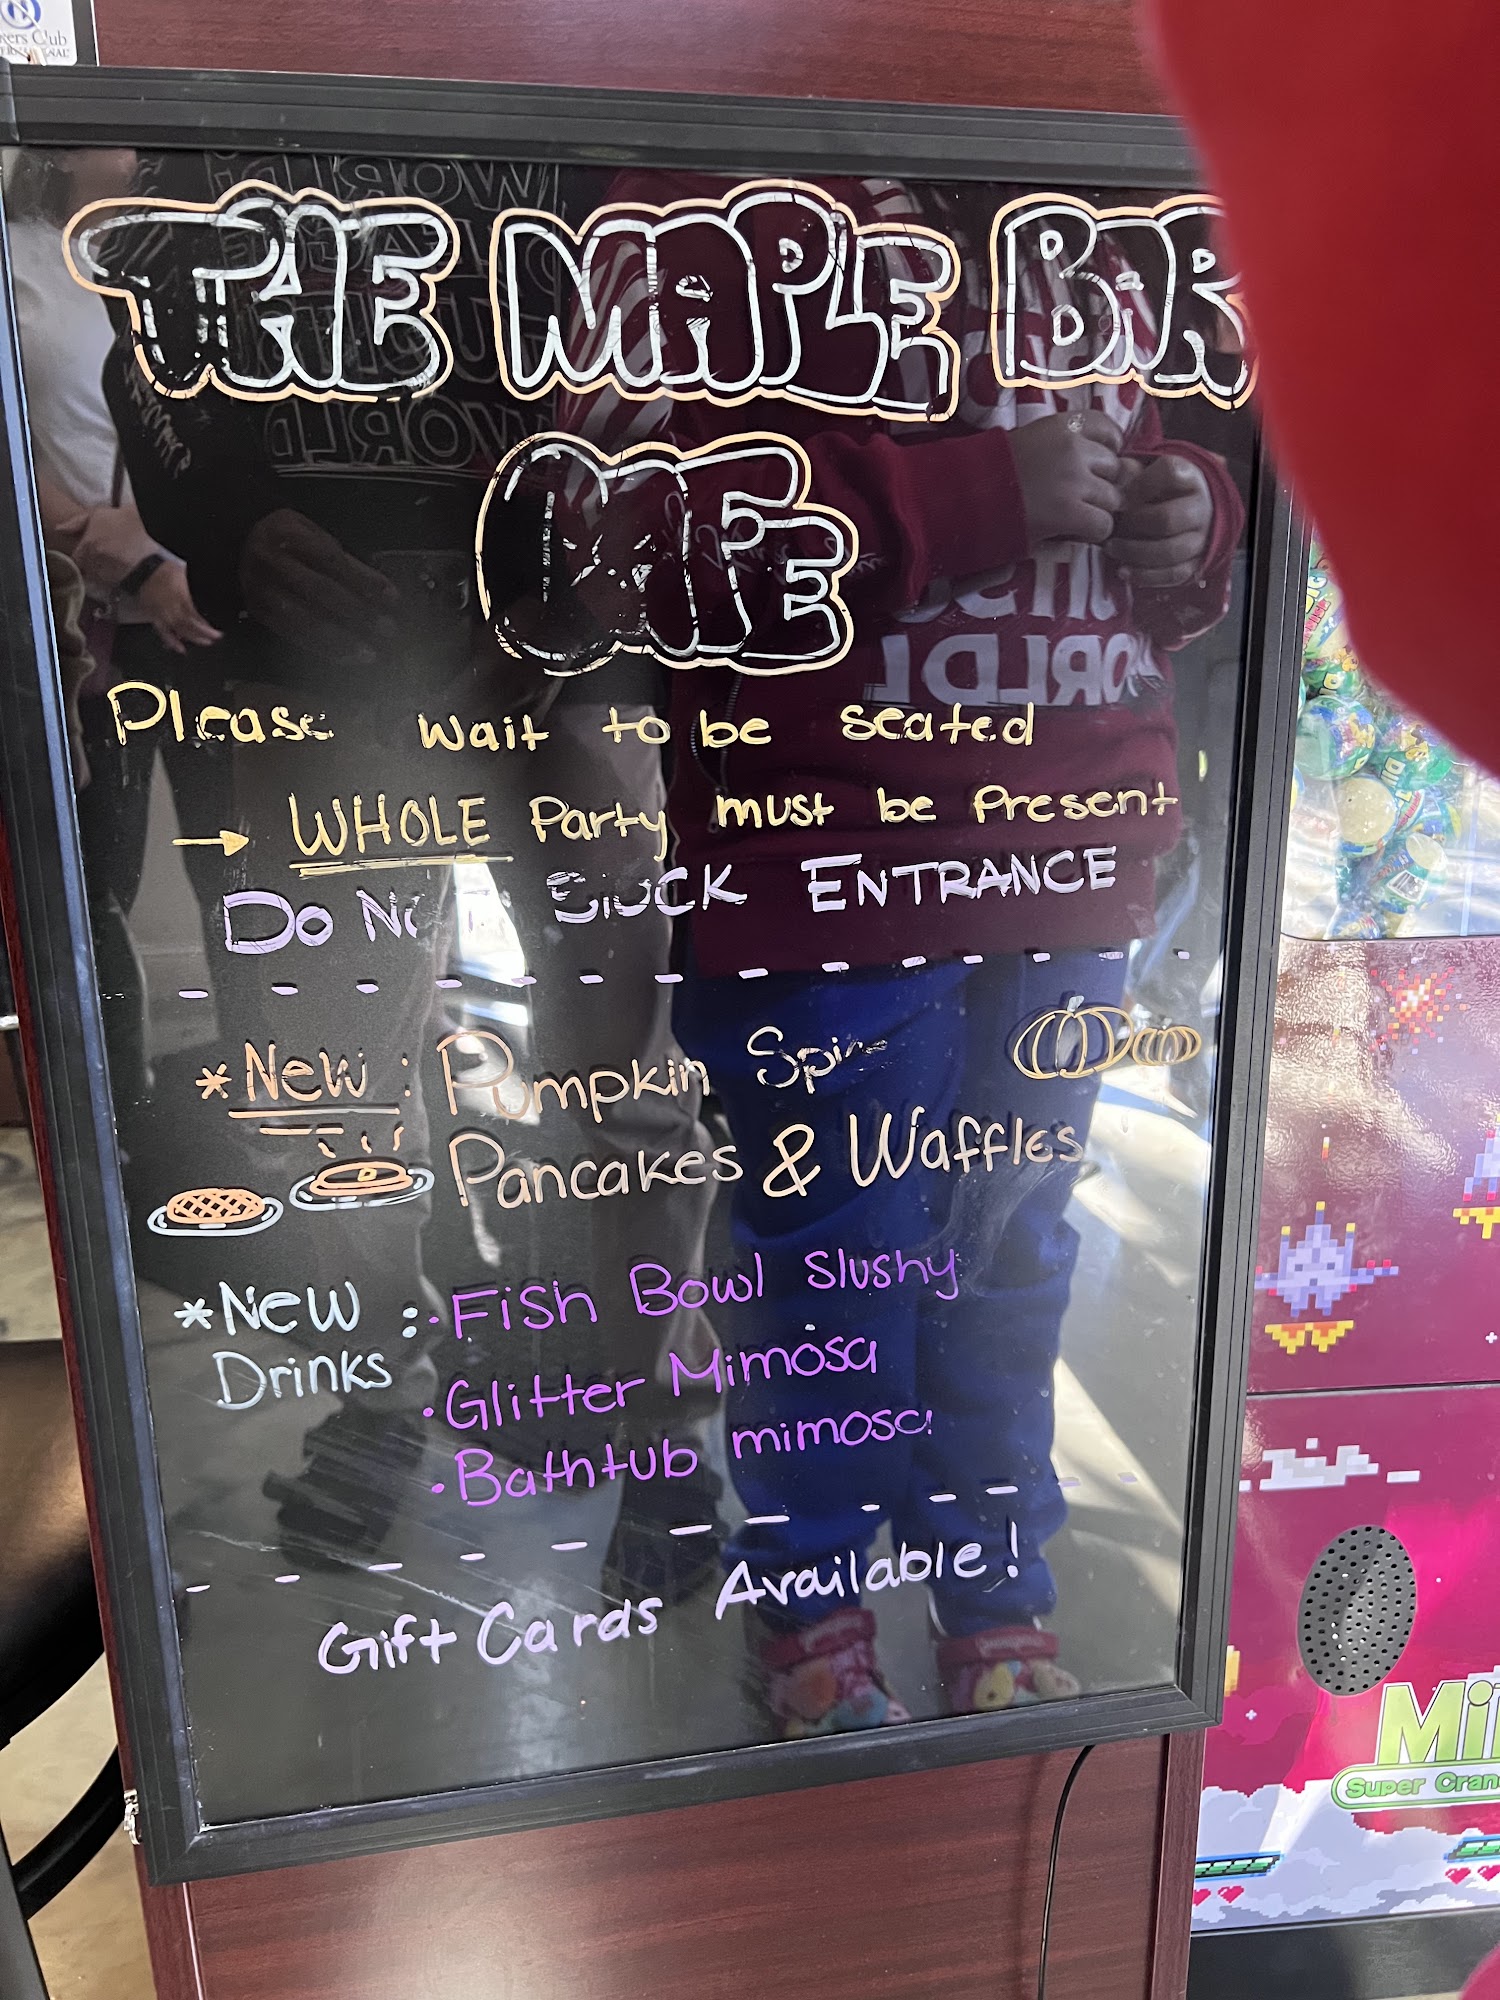 THE MAPLE BAR
CAFE
Please wait to be seated
→ WHOLE Party must be Present
DO NOT BLOCK ENTRANCE
*New: Pumpkin Spice
Pancakes & Waffles
*New Drinks :
· Fish Bowl Slushy
· Glitter Mimosa
· Bathtub mimosa
Gift Cards Available!
Super Cran